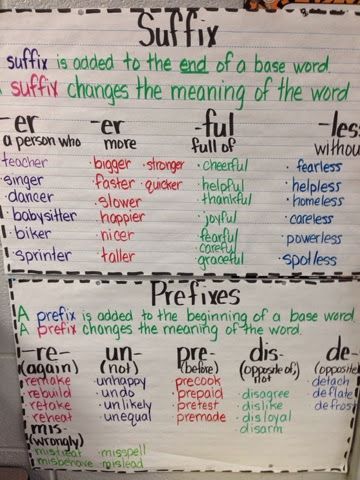 Suffix
suffix is added to the end of a base word.
A suffix changes the meaning of the word
-er -er -ful -less
a person who more full of without
teacher
singer
dancer
babysitter
biker
sprinter
bigger • stronger
faster • quicker
slower
happier
nicer
taller
• cheerful
• helpful
• thankful
• joyful
• fearful
careful
graceful
• fearless
• helpless
• homeless
• careless
• powerless
• spotless
Prefixes
A prefix is added to the beginning of a base word.
A prefix changes the meaning of the word.
re- un- pre- dis- de-
(again) (not) (before) (opposite of, not (opposite
remake
rebuild
retake
reheat
• unhappy
• undo
• unlikely
• unequal
• precook
• prepaid
• pretest
• premade
• disagree
• dislike
• disloyal
• disarm
• detach
• deflate
• defrost
mis-
(wrongly)
mistreat • misspell
misbehave • mislead